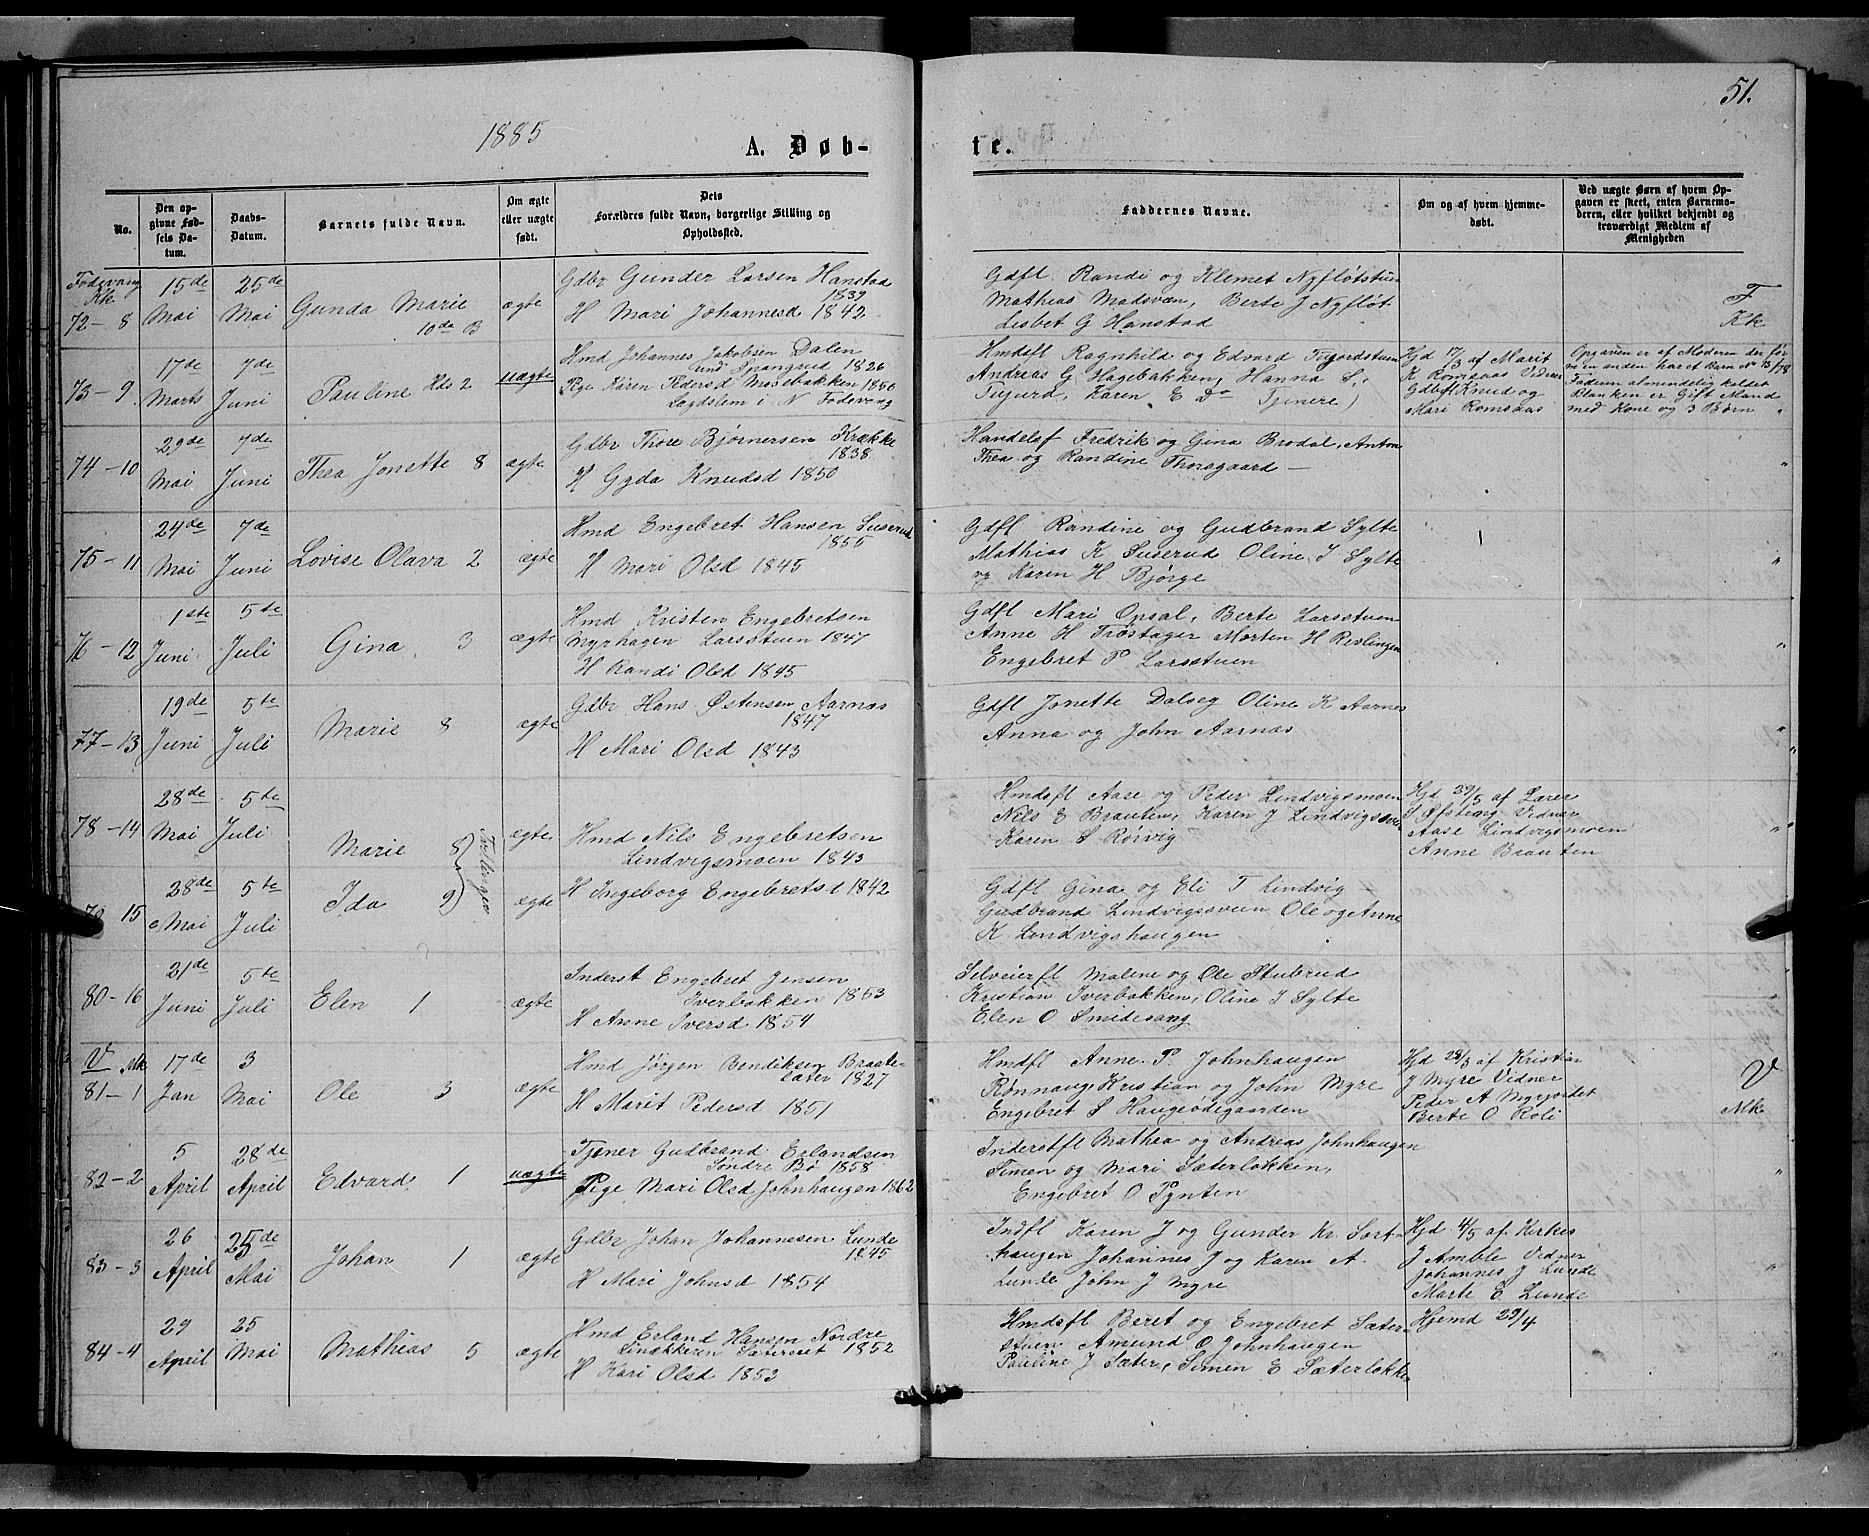 51.
1885
A. Døb-
te.
No.
Den op-
givne Fød-
sels Da-
tum.
Daabs-
Datum.
Barnets fulde Navn.
Om ægte
eller uægte
født.
Dets
Forældres fulde Navn, borgerlige Stilling og
Opholdssted.
Faddernes Navne.
Om og af hvem hjemme-
døbt.
Ved uægte Børn af hvem Op-
gaven er skeet, enten Barnemo-
deren, eller hvilket bekjendt og
troværdigt Medlem af
Menigheden
Fødevang
Kk
72-8
15de
Mai
25de
Mai
Gunda Marie
10de B
ægte
Gdbr Gunder Larsen Hanstad
1839
H Mari Johannesd 1842
Gdfl Randi og Klemet Nyfløtstuen
Mathias Madsveen, Berte J Nyfløt
Lisbet G Hanstad
F
Kk
73-9
17de
Marts
7de
Juni
Pauline Hds 2
uægte
Hmd Johannes Jakobsen Dalen
und Spangrud 1826
Pige Karen Pedersd Mosebakken 1850
Lagdslem i N Fodevang
Hmdsfl Ragnhild og Edvard
Andreas G Hagebakken, Hanna S.
Karen E Do Tjenere)
Hjd 17/3 af Marit
K Romsaas Vidner
Gdbfl Knud og
Mari Romsaas
Opgaven er af Moderen der før
m en anden har et Barn No 13/78
Faderen almindelig kaldet
Blanken er Gift Mand
med Kone og 3 Børn "
74-10
29de
Mai
7de
Juni
Thea Jonette 8
ægte
Gdbr Thore Bjørnersen Krække
1838
H Gyda Knudsd 1850
Handelsf Fredrik og Gina Brodal, Anton
Thea og Randine Thorsgaard —
"
75-11
24de
Mai
7de
Juni
Lovise Olava 2
ægte
Hmd Engebret Hansen Suserud
1855
H Mari Olsd 1845
Gdfl Randine og Gudbrand Sylte
Mathias K Suserud Oline J Sylte
og Karen H Bjørge
"
76-12
1ste
Juni
5te
Juli
Gina 3
ægte
Hmd Kristen Engebretsen
Myrhagen Larsstuen 1847
H Randi Olsd 1845
Gdfl Mari Opsal, Berte Larsstuen
Anne H Trøstager Morten H Revlingen
Engebret P Larsstuen
"
77-13
19de
Juni
5te
Juli
Marie 8
ægte
Gdbr Hans Østensen Aarnæs
1847
H Mari Olsd 1843
Gdfl Jonette Dalseg Oline K Aarnes
Anna og John Aarnæs
"
78-14
28de
Mai
5te
Juli
Marie 8
Tvillinger
ægte
Hmd Nils Engebretsen
Lindvigsmoen 1843
Hmdsfl Aase og Peder Lindvigsmoen
Nils E Brauten, Karen J Lindvigsveen
Karen S Rørvig
Hjd 30/5 af Lærer
S Øfsteng Vidner
Aase Lindvigsmoen
Anne Brauten
"
79 15
28de
Mai
5te
Juli
Ida 9
ægte
H Ingeborg Engebretsd 1842
Gdfl Gina og Eli T Lindvig —
Gudbrand Lindvigsveen Ole og Anne
K Lindvigshaugen
80-16
21de
Juni
5te
Juli
Elen 1
ægte
Inderst Engebret Jensen
Iverbakken 1853
H Anne Iversd 1854
Selveierfl Malene og Ole Stubrud
Kristian Iverbakken, Oline J Sylte
Elen O Smidesang
V Mk
81-1
17de
Jan
3
Mai
Ole 3
ægte
Hmd Jørgen Bendiksen Braate-
sæter 1827
H Marit Pedersd 1851
Hmdfl Anne P. Johnhaugen
Rønnaug Kristian og John Myre
Engebret S Haugeødegaarden
Hjd 28/3 af Kristian
J Myre Vidner
Peder A Myrjordet
Berte O Roli
V
Mk
82-2
5
April
28de
April
Edvard 1
uægte
Tjener Gudbrand Erlandsen
Søndre Bø 1858
Pige Mari Olsd Johnhaugen 1862
Inderstfl Mathea og Andreas Johnhaugen
Simen og Mari Sæterløkken,
Engebret O Pynten
"
83-3
26
April
25de
Mai
Johan 1
ægte
Gdbr Johan Johannesen Lunde
1845
H Mari Johnsd 1854
Indfl Karen J og Gunder Kr. Sort-
haugen Johannes J og Karen A.
Lunde John J Myre
Hjd 4/5 af Kirkes
J Amble Vidner
Johannes J Lunde
Marte E Lunde
"
84-4
29
April
25
Mai
Mathias 5
ægte
Hmd Erland Hansen Nordre
Linækkeren Sæterset 1852
H Kari Olsd 1853
Hmdsfl Beret og Engebret Sæter-
stuen Amund O Johnhaugen
Pauline J Sæter, Simen E Sæterløkken
Hjemd 29/4